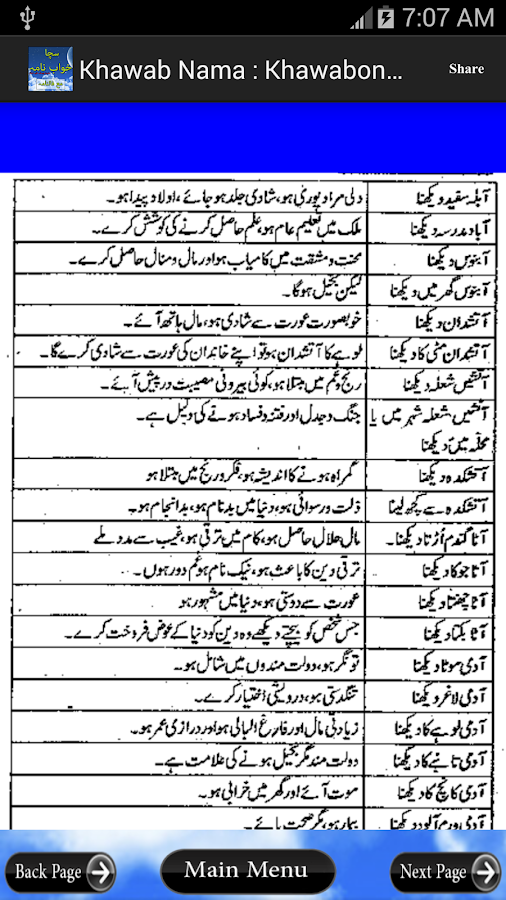 7:07 AM
سچا
خواب نامہ
مع فالنامہ
Khawab Nama : Khawabon...
Share
آبلہ سفید دیکھنا دلی مراد پوری ہو، شادی جلد ہو جائے، اولاد پیدا ہو۔
آباد مدرسہ دیکھنا ملک میں تعلیم عام ہو، علم حاصل کرنے کی کوشش کرے۔
آبنوس دیکھنا محنت و مشقت میں کامیاب ہو اور مال و منال حاصل کرے۔
آبنوس گھر میں دیکھنا لیکن بخیل ہوگا۔
آتشدان دیکھنا خوبصورت عورت سے شادی ہو، مال ہاتھ آئے۔
آتشدان مٹی کا دیکھنا لوہے کا آتشدان ہو تو اپنے خاندان کی عورت سے شادی کرے گا۔
آتشیں شعلہ دیکھنا رنج و غم میں مبتلا ہو، کوئی بیرونی مصیبت درپیش آئے۔
آتشیں شعلہ شہر میں یا جنگ و جدل اور فتنہ و فساد ہونے کی دلیل ہے۔
محلہ میں دیکھنا
آتشکدہ دیکھنا گمراہ ہونے کا اندیشہ ہو، فکر و رنج میں مبتلا ہو
آتشکدہ سے کچھ لینا ذلت و رسوائی ہو، دنیا میں بدنام ہو، بد انجام ہو۔
آٹا گندم اڑتا دیکھنا۔ مال حلال حاصل ہو، کام میں ترقی ہو، غیب سے مدد ملے
آٹا جو کا دیکھنا ترقی دین کا باعث ہو، نیک نام ہو غم دور ہوں۔
آٹا چھنتا دیکھنا عورت سے دوستی ہو، دنیا میں مشہور ہو
آٹا بکتا دیکھنا جس شخص کو بیچتے دیکھے وہ دین کو دنیا کے عوض فروخت کرے۔
آدمی موٹا دیکھنا تونگر ہو، دولت مندوں میں شامل ہو۔
آدمی لاغر دیکھنا تنگدستی ہو، درویشی اختیار کرے۔
آدمی لوہے کا دیکھنا زیادتی مال اور فارغ البالی ہو اور درازی عمر ہو۔
آدمی تانبے کا دیکھنا دولت مند مگر بخیل ہونے کی علامت ہے۔
آدمی کانچ کا دیکھنا موت آئے اور گھر میں خرابی ہو۔
آدمی ورم آلود دیکھنا بیمار ہو، مگر صحت پائے۔
Back Page
Main Menu
Next Page